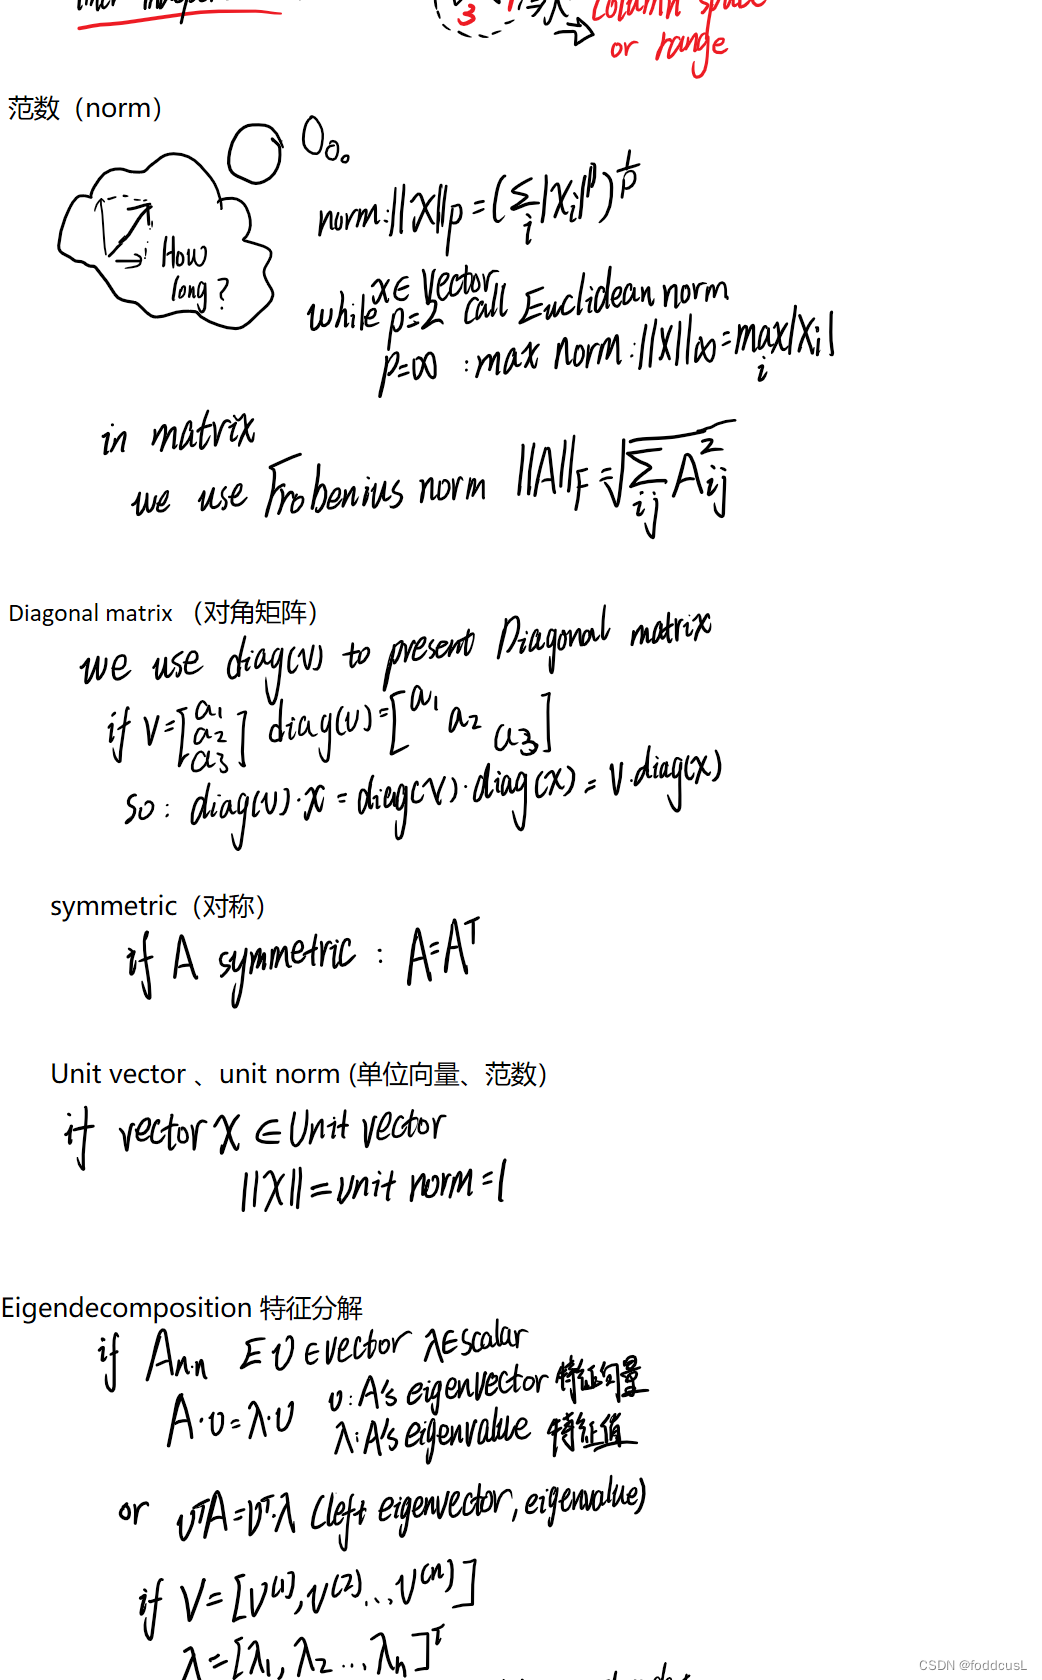 column space
3
or range
范数（norm）
How
long?
norm: ||X||p = (Σi |Xi|^p)^(1/p)
x∈ Vector
while p=2 call Euclidean norm
p=∞ : max norm: ||X||∞ = max i |Xi|
in matrix
we use Frobenius norm ||A||F = √(Σij A²ij)
Diagonal matrix （对角矩阵）
we use diag(v) to present Diagonal matrix
if V = [a1 a2 a3] diag(v) = [a1 a2 a3]
so: diag(v)·x = diag(v)·diag(x) = v·diag(x)
symmetric（对称）
if A symmetric : A=A^T
Unit vector 、unit norm (单位向量、范数）
if vector X ∈ Unit vector
||X|| = unit norm = 1
Eigendecomposition 特征分解
if An·n ∃ v ∈ vector λ∈scalar
A·v = λ·v v: A's eigenvector 特征向量
λ: A's eigenvalue 特征值
or v^T A = v^T·λ (left eigenvector, eigenvalue)
if V = [v^(1), v^(2) ... v^(n)]
λ = [λ1, λ2 ... λn]^T
CSDN @foddcusL